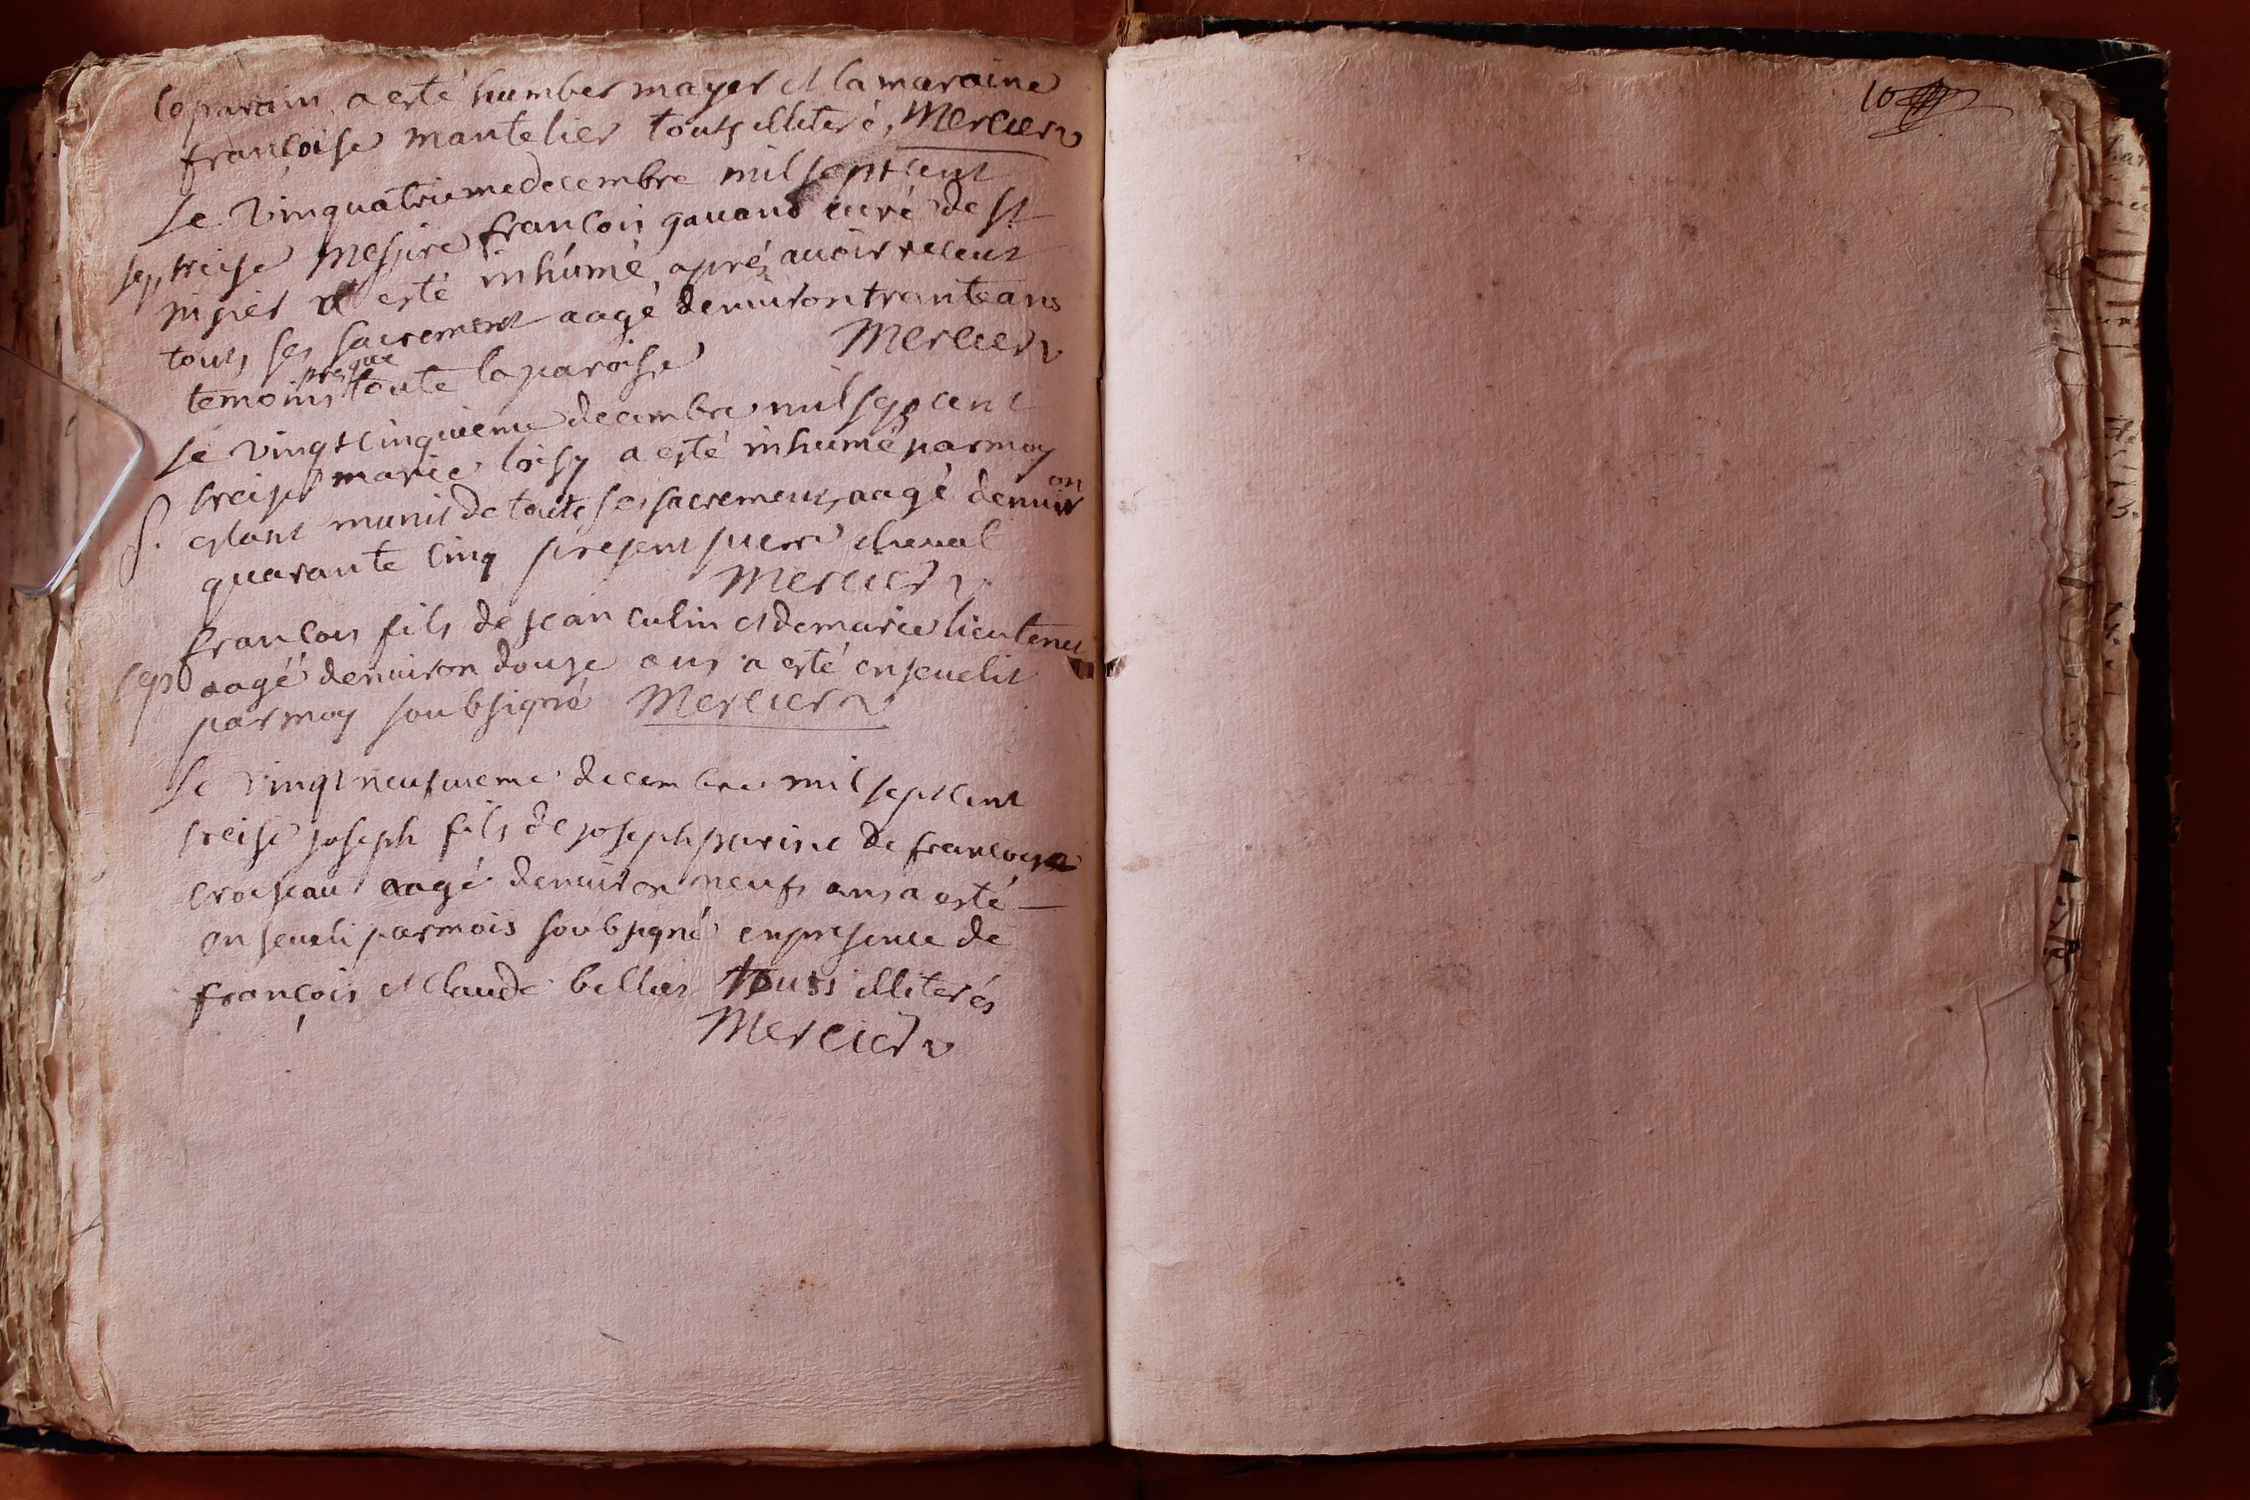 le parain a esté humber mayer et la maraine
francoise mantelier touts illiteré, Mercier
Le vinquatrieme decembre mil sept cent
sep. treise Mesire francois gauand curé de St
a esté inhumé aprés avoir receut
touts ses sacrement aagé denuiron trante ans
Mercier
presque
temoins toute la paroise
Le vingt cinquieme decembre mil sept cent
treise marie loisy a esté inhumé par moy
S. estant munit de touts ses sacrements, aagé denuiron
quarante cinq present pierre cheual
Mercier
francois fils de jean culin et de marie lieutenet
sep aagé denuiron douze ans a esté enseuelit
par moy soubsigné Mercier
Le vingt neufuieme decembre mil sept cent
treise joseph fils de joseph perin de francoyse
croiseau aagé denuiron neufs ans a esté
enseueli par mois soubsigné en presence de
francois et claude bellier touts illiterés
Mercier
10